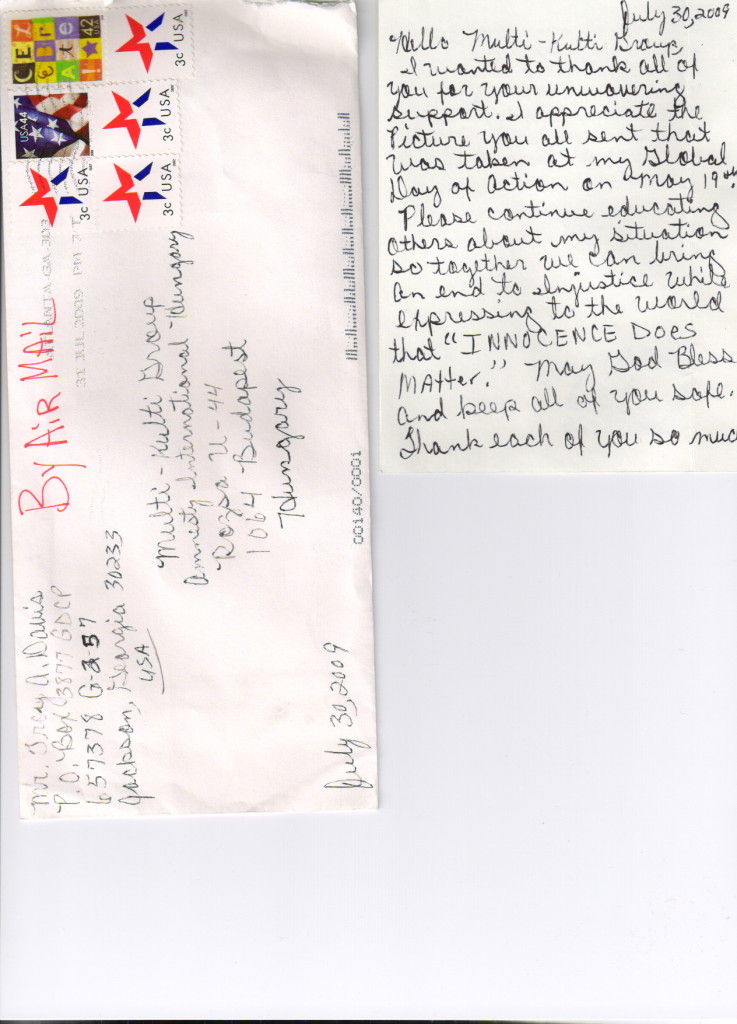 Mr. Troy A. Davis
P.O. Box 3877 GDCP
657378
Jackson, Georgia 30233
USA
CELEBRATE!
42 USA
USA 44
3c USA
3c USA
3c USA
3c USA
31 JUL 2009 PM 3 T
By AiR MAiL
Multi-Kulti Group
Amnesty International-Hungary
Rozsa U-44
1064 Budapest
Hungary
July 30, 2009
00140/0001
July 30, 2009
Hello Multi-Kulti Group,
I wanted to thank all of
you for your unwavering
support. I appreciate the
Picture you all sent that
was taken at my Global
Day of Action on May 19th.
Please continue educating
others about my situation
so together we can bring
an end to Injustice while
expressing to the world
that "INNOCENCE DOES
MAtter." May God Bless
and keep all of you safe.
Thank each of you so much